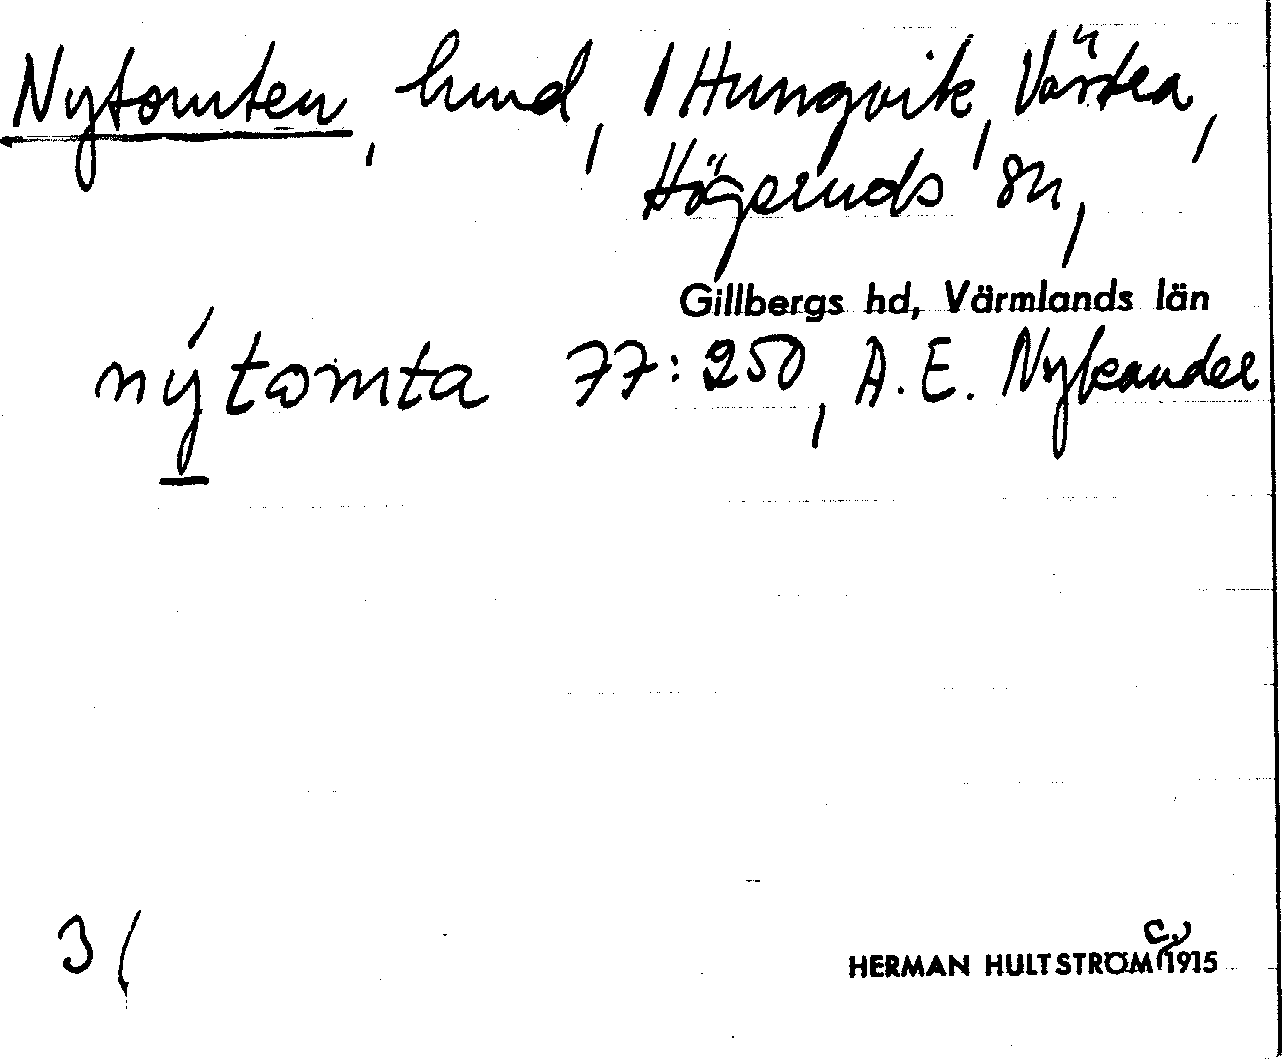 Nytomten, hmd, 1 Hungvik, Västra,
Högeruds sn,
Gillbergs hd, Värmlands län
nýtomta 77:250, A. E. Nykander
3/
HERMAN HULTSTRÖM c. 1915